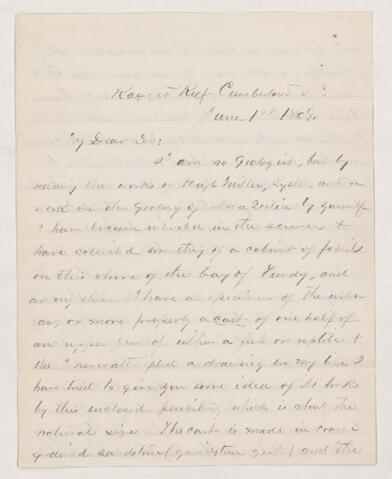 Ragged Reef Cumberland N.S.
June 1st 1869.
My Dear Sir;
I am no Geologist, but by
reading the works of Hugh Miller, Lyell, and a
work on the Geology of Nova Scotia by yourself
I have become interested in the science &
have collected something of a cabinet of fossils
on this shore of the bay of Fundy, and
among these I have a specimen of the upper
jaw or more properly a cast of one half of
an upper jaw of either a fish or reptile &
tho' I never attempted a drawing in my life I
have tried to give you some idea of its looks
by this enclosed pencilling which is about the
natural size. The cast is made in coarse
grained sandstone (grindstone grit) and the